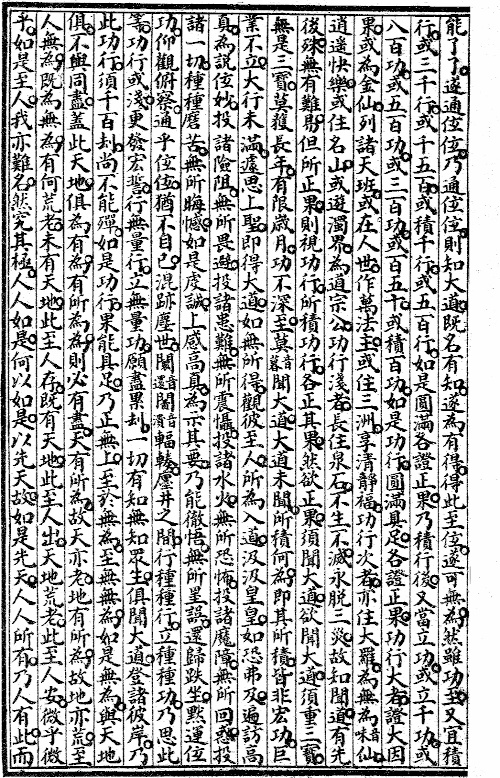 能了了遂通位位乃通位位則知大道既名有知遂為有得得此至位遂可無為然雖功主又宜積
行或三千行或千五百或積千行或五百行如是圓滿各證正果乃積行後又當立功或立千功或
八百功或五百功或三百功或百五十或積百功如是功行圓滿具足各證正果功行大者證大因
果或為金仙列諸天班或在人世作萬法主或住三洲享清靜福功行次者亦住大羅為無為仙
逍遙快樂或住名山或遊濁界為道宗公功行淺者長住泉石不生不滅永脫二災故知聞道有先
後殊無有難易但所正果則視功行所積功行各正其果然欲正果須聞大道欲聞大道須重三寶
無是三寶莫獲長年有限歲月功不深至莫聞大道大道未聞所積何為即其所積皆非宏功巨
業不立大行未滿遽思上聖即得大道如無所得觀彼至人所為入道汲汲皇皇如恐弗及遍訪高
真為說位妙投諸險阻無所畏避投諸患難無所震懾投諸水火無所恐怖投諸魔障無所回惑投
諸一切種種磨苦無所悔憾如是虔誠上感高真為示其要乃能徹悟無所呈誤還歸趺坐默運位
功仰觀俯察通乎位位猶不自已混跡塵世闤闠輻輳廛井之間行種種行立種種功乃思此
等功行或淺更發宏誓行無量行立無量功願盡果刦一切有知無知眾生俱聞大道登諸彼岸乃
此功行須千百刦尚不能殫如是功行果能具足乃正無上至於無為至無無為如是無為與天地
俱不與同盡蓋此天地俱為有為有所為為則必有盡天有所為故天亦老地有所為故地亦荒至
人無為既為無為有何荒老未有天地此至人存既有天地此至人出天地荒老此至人安微乎微
乎如是至人我亦難名然究其極人人如是何以如是以先天故如是先天人人所有乃人有此而